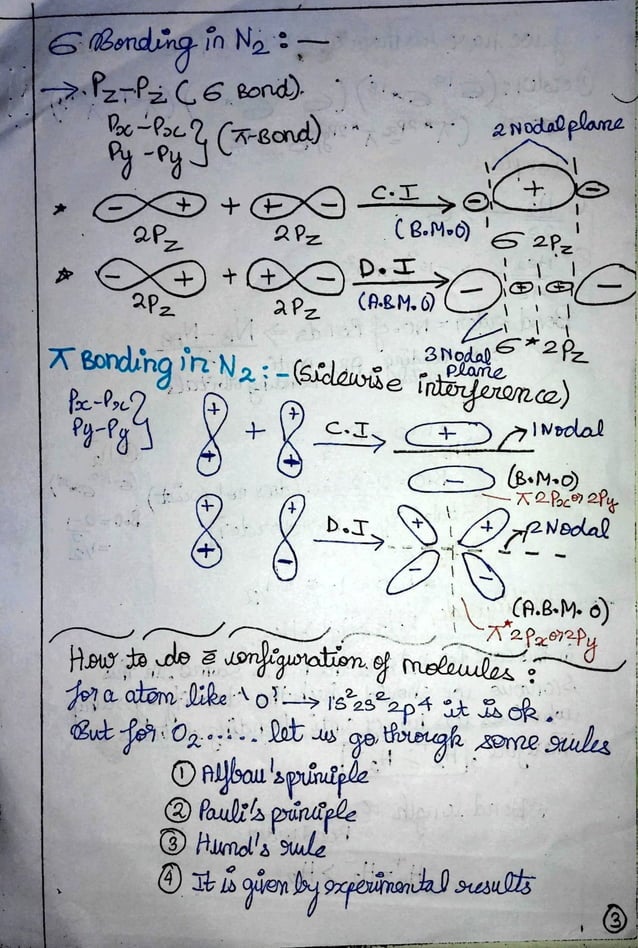 σ Bonding in N₂ : —
→ Pz-Pz (σ Bond).
Px-Px } (π-Bond)
Py-Py
2 Nodal plane
* - + + + - C.I - + -
2Pz 2Pz (B.M.O) σ 2Pz
* - + + + - D.I - + + -
2Pz 2Pz (A.B.M.O) σ* 2Pz
3 Nodal plane
π Bonding in N₂ :- (Sidewise interference)
Px-Px }
Py-Py
+ + + C.I + 1 Nodal
+ + - (B.M.O)
π 2Px or 2Py
+ + D.I + + 2 Nodal
+ - - -
(A.B.M.O)
π* 2Px or 2Py
How to do e configuration of molecules :
for a atom like 'O' → 1s² 2s² 2p⁴ it is ok.
But for O₂..... let us go through some rules
① Alfbau's priniple
② Pauli's principle
③ Hund's rule
④ It is given by experimental results
③